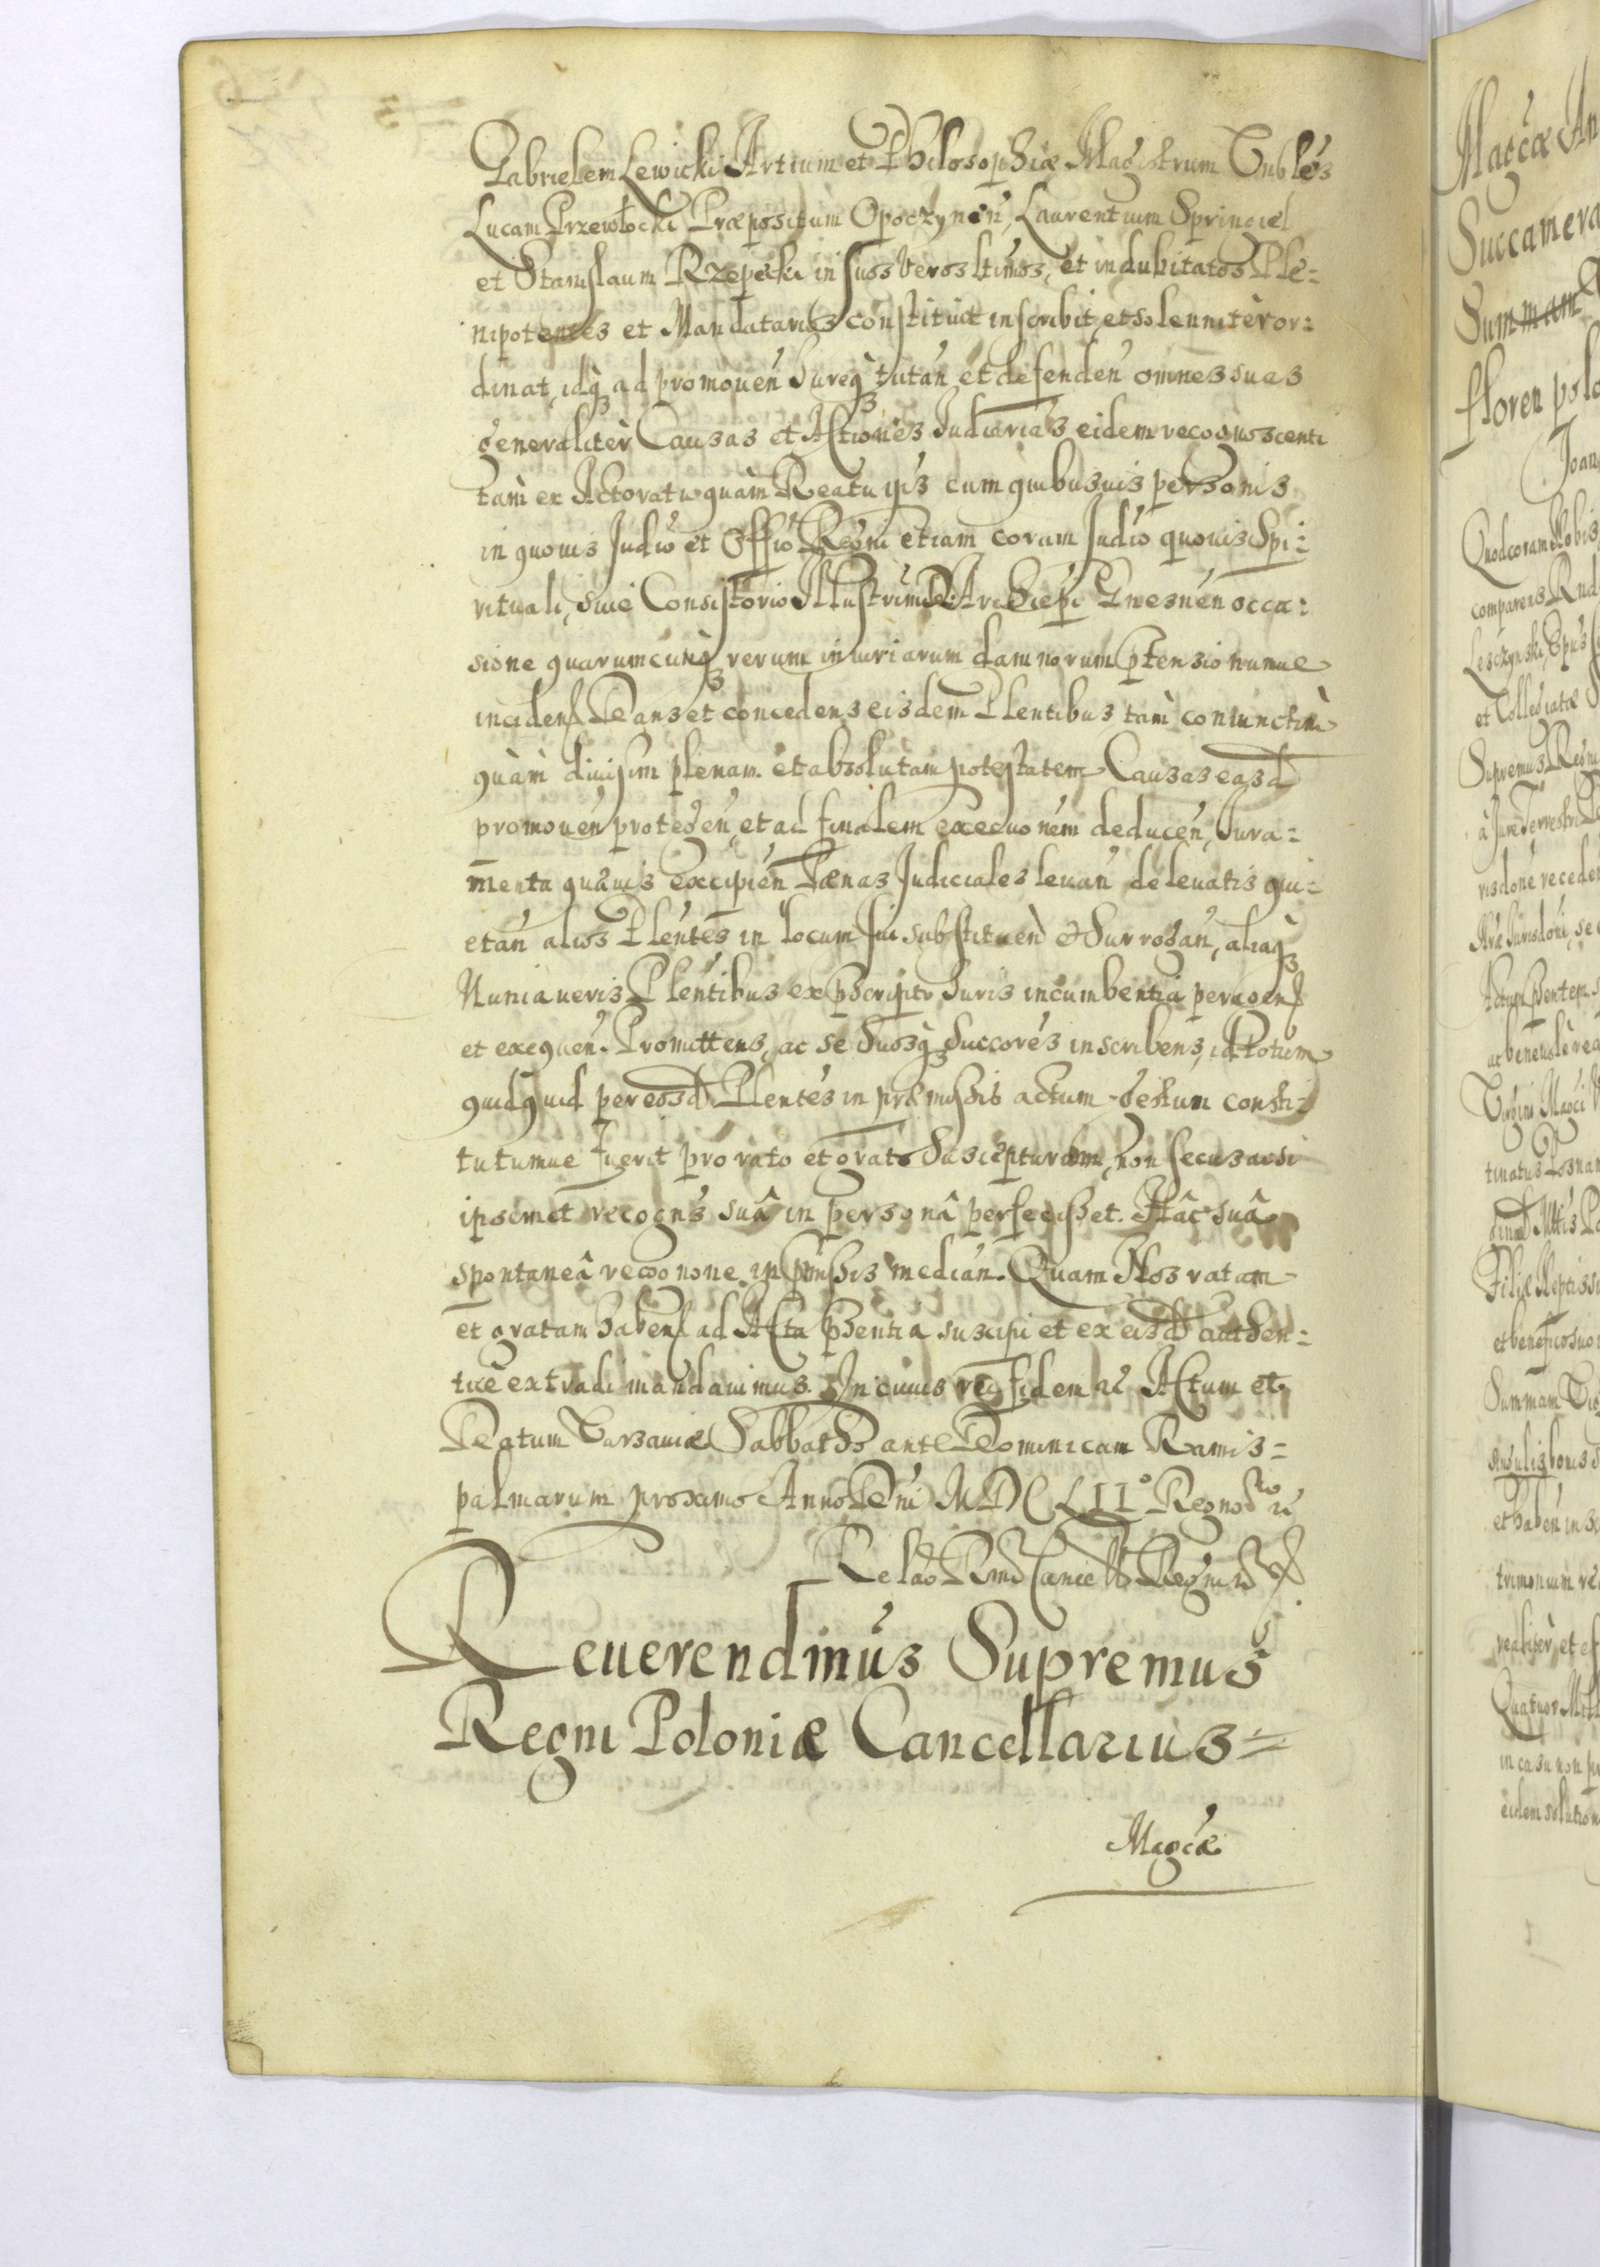 Gabrielem Lewicki Artium et Philosophiæ Magistrum Gnbles
Lucam Przewłocki Præpositum Opoczynen, Laurentium Springiel
et Stanislaum Rzepecki in suos veros ltimos, et indubitatos Ple-
nipotentes et Mandatarios constituit inscribit, et solenniter or-
dinat, idq ad promouen Iureq tutan et defenden omnes suas
generaliter Causas et Actiones Judiarias eidem recognoscenti
tam ex Actoratu quàm Reatu ipis cum quibusuis personis
in quouis Judio et Offio Regni etiam coram Judio quouis Spi-
rituali, siue Consistorio Illustrimi D. Archiepi Gnesnen occa-
sione quarumcunq rerum iniuriarum damnorum ptensionumue
inciden Dans et concedens eisdem Plentibus tam coniunctim
quàm diuisim plenam et absolutam potestatem Causas easd
promouen protegen, et ad finalem execuonem deducen, Iura-
menta quæuis excipien Pænas Judiciales leuan de leuatis qui-
etan alios Plentes in locum sui substituen & Surrogan, aliaq
Munia ueris Plentibus ex pscripto Iuris incumbentia peragen
et exequen. Promittens, ac se Suosq Succores inscribens, id totum
quidquid per eosd Plentes in præmissis actum gestum consti-
tutumue fuerit pro rato et grato Suscepturum, non secus ac si
ipsemet recogns suâ in personâ perfecisset. Hâc suâ
spontaneâ recognone in pmissis median. Quam Nos ratam
et gratam haben ad Acta phentia suscipi et ex eisd authen-
tice extradi mandauimus. In cuius rei fidem &c Actum et
Datum Varsauiæ Sabbatho ante Dominicam Ramis-
palmarum proximo Anno Dni MDCLIIº Regno &c
Relao Rmd Cancell Regni &c
Reuerendmus Supremus
Regni Poloniæ Cancellarius
Magcæ
Magcæ An
Succamera
Summam
floren polo
Joan
Quod coram Nobis
comparens Rnd
Lesczynski Epus
et Collegiatæ
Supremus Regni
à Jure Terrestri
risdone receden
se
Actum phentem
ac beneuole rea
Virgini Magci
tinatus Posnan
et benefico suo
Summam
et haben in
trimonium
realiter, et ef
Quatuor Mill
in casu non
eidem solution